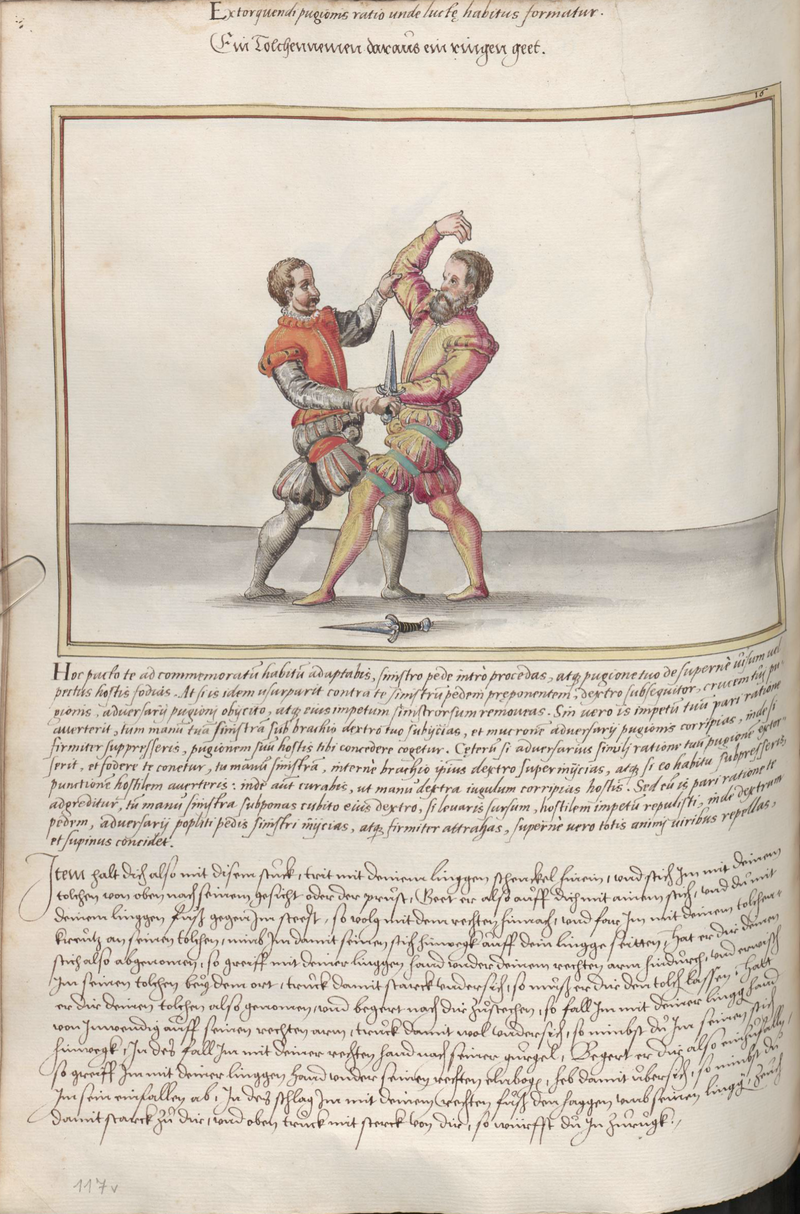 Extorquendi pugionis ratio unde luctę habitus formatur.
Ein Tolchennemen daraus ein ringen geet.
16
Hoc pacto te ad commemoratũ habitũ adaptabis, sinistro pede intrò procedas, atq; pugione tuo de supernè uisum uel
pectus hostis fodias. At si is idem usurparit contra te sinistrũ pedem pręponentem, dextro subsequitor, crucem tui pu-
gionis, adversarij pugioni obijcito, atq; eius impetum sinistrorsum remoueas. Sin uero is impetũ tuũ pari ratione
auerterit, tum manũ tuã sinistrã sub brachio dextro tuo subijcias, et mucronẽ adversarij pugionis corripias, inde si
firmiter suppresseris, pugionem suũ hostis tibi concedere cogetur. Cęterũ si adversarius simili ratione tuũ pugionẽ extor-
serit, et fodere te conetur, tu manũ sinistrã, internè brachio ipsius dextro superinijcias, atq; si eo habitu subpresseris
punctione hostilem auerteris: inde aut curabis, ut manu dextra iugulum corripias hostis. Sed cũ is pari ratione te
adgreditur, tu manũ sinistrã subponas cubito eius dextro, si leuaris sursum, hostilem impetũ repulisti, inde dextrum
pedem, adversarij popliti pedis sinistri inijcias, atq; firmiter attrahas, supernè uero totis animi uiribus repellas,
et supinus concidet.
Item halt dich also mit disem stuckh, trit mit deinem linggen schenckel hinein, und stich Im mit deinem
tolchen von oben nach seinem gesicht oder der prust, Geet er also auff dich mit ainem stich, und du mit
deinem linggen fuß gegen Im steest, so volg mit dem rechten hinnach, und far Im mit deinem tolchen
kreutz an seinen tolchen, nimb Im damit seinen stich hinwegk auff dein lingge seitten, hat er dir deinen
stich also abgenomen, so greiff mit deiner linggen hand under deinem rechten arm hindurch, und erwisch
Im seinen tolchen bey dem ort, truck damit starck undersich, so muß er dir den tolch lassen, halt
er dir deinen tolchen also genomen, und begert nach dir zustechen, so fall Im mit deiner lingg hand
von Inwendig auff seinen rechten arm, truck damit wol undersich, so nimbst du Im seinen stich
hinwegk, In des fall Im mit deiner rechten hand nach seiner gurgel, Begert er dir also einzufallen,
so greiff Im mit deiner linggen hand under seinen rechten elnbogẽ, heb damit ubersich, so nimbst du
Im sein einfallen ab, In des schlag Im mit deinem rechten fuß den haggen umb seinen lingg, zeuch
damit starck zu dir, und oben truck mit sterck von dir, so würffst du In zurugk.
117v